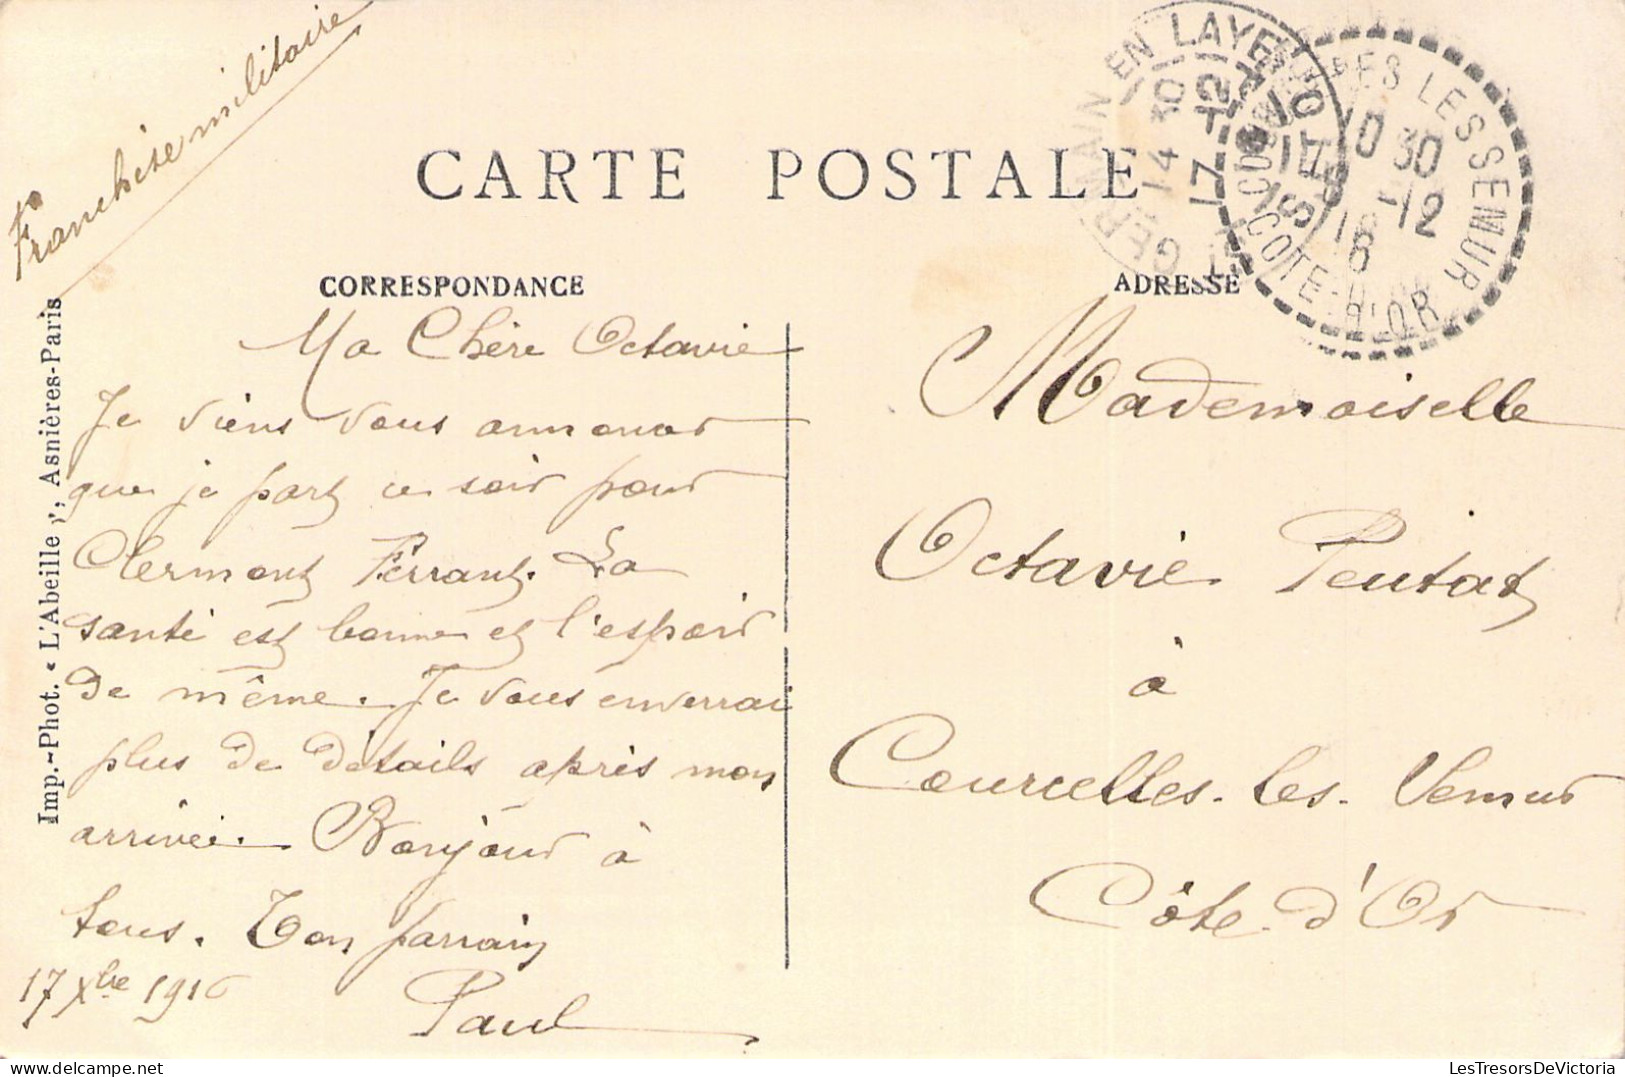 Franchise militaire
CARTE POSTALE
ST GERMAIN EN LAYE
SEINE ET OISE
14 30
17 -12
COURCELLES LES SEMUR
10 30
-12
16
COTE-D'OR
CORRESPONDANCE
ADRESSE
Imp.-Phot. « L'Abeille », Asnières-Paris
Ma Chère Octavie
Je viens vous annoncer
que je part ce soir pour
Clermont Ferrant. La
santé est bonne et l'espoir
de même. Je vous enverrai
plus de détails après mon
arrivée. Bonjour à
tous. Ton parrain
17 Xbre 1916
Paul
Mademoiselle
Octavie Peutat
à
Courcelles-les-Semur
Côte-d'Or
LesTresorsDeVictoria